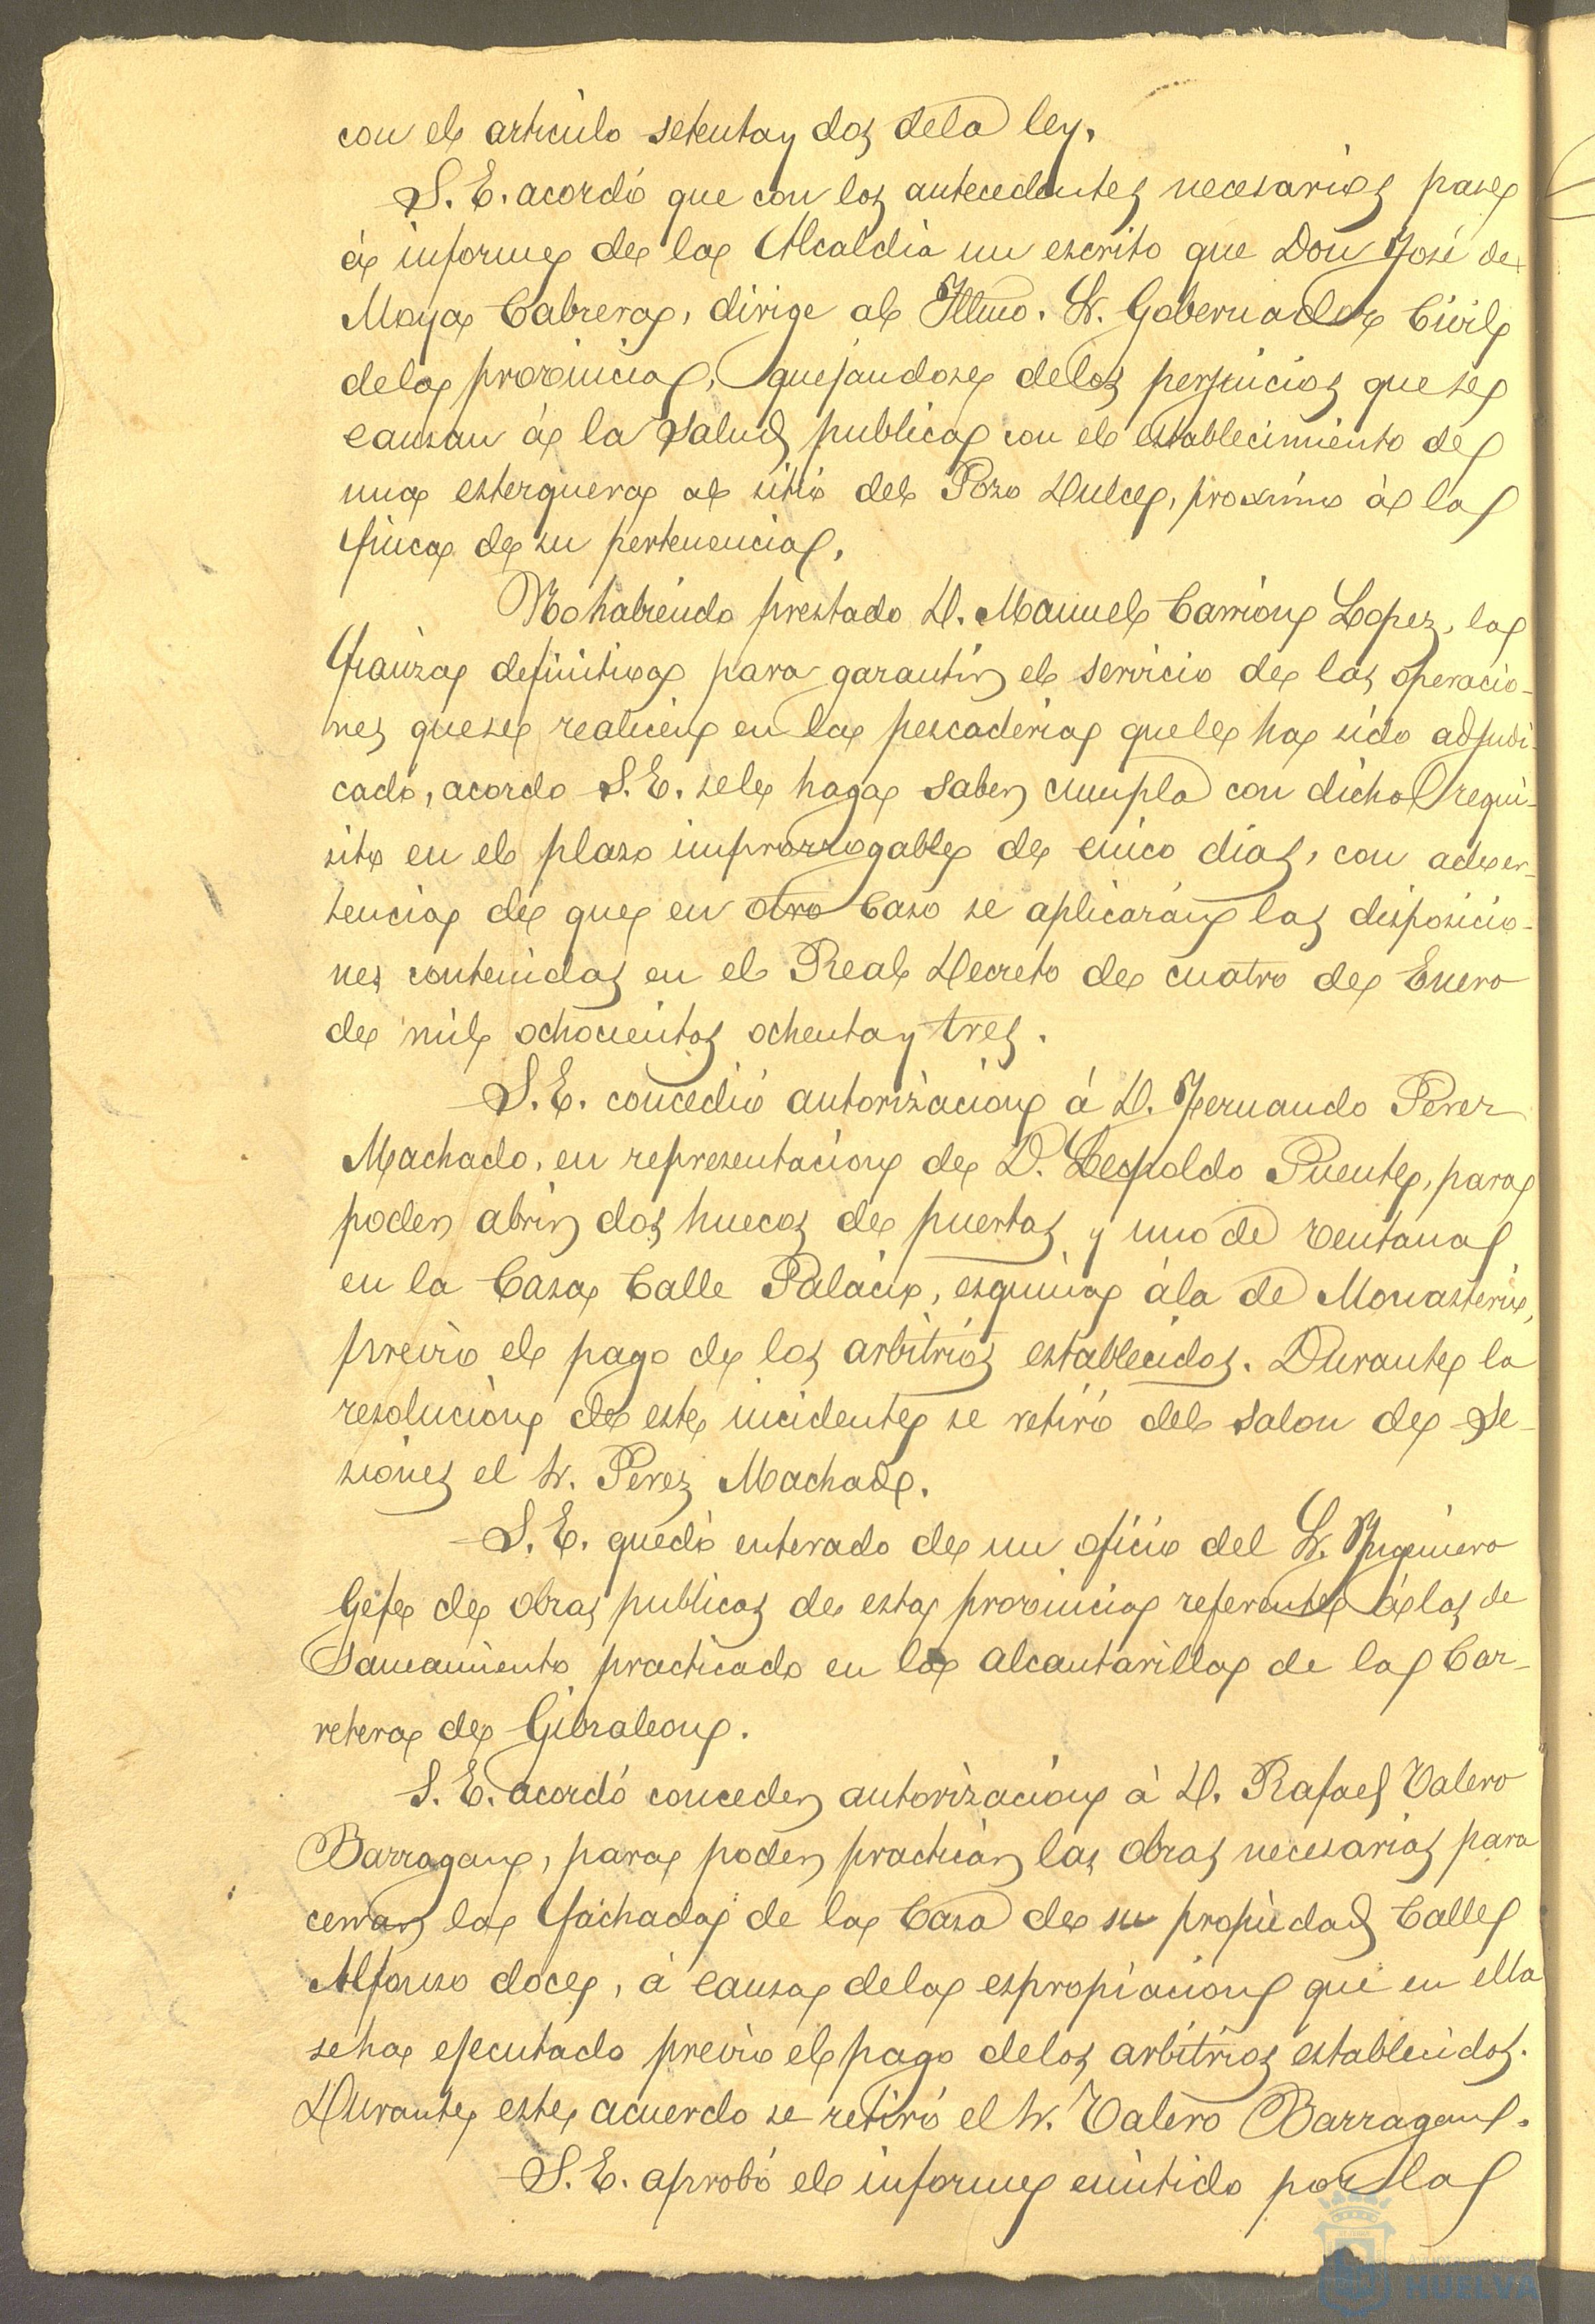 con el articulo setenta y dos de la ley.
S. E. acordó que con los antecedentes necesarios pase
á informe de la Alcaldia un escrito que Don José de
Moya Cabrera, dirige al Iltmo. Sr. Gobernador Civil
de la provincia, quejandose de los perjuicios que se
causan á la salud publica con el establecimiento de
una esterquera al sitio del Pozo Dulce, proximo á la
finca de su pertenencia.
No habiendo prestado D. Manuel Carrion Lopez, la
fianza definitiva para garantir el servicio de las operacio-
nes que se realicen en la pescaderia que le ha sido adjudi-
cado, acordo S. E. se le haga saber cumpla con dicho requi-
sito en el plazo improrrogable de cinco dias, con adver-
tencia de que en otro caso se aplicarán las disposicio-
nes contenidas en el Real Decreto de cuatro de Enero
de mil ochocientos ochenta y tres.
S. E. concedió autorizacion á D. Fernando Perez
Machado, en representacion de D. Leopoldo Puente, para
poder abrir dos huecos de puertas y uno de ventana
en la Casa Calle Palacio, esquina á la de Monasterio,
previo el pago de los arbitrios establecidos. Durante la
resolucion de este incidente se retiró del salon de Se-
siones el Sr. Perez Machado.
S. E. quedó enterado de un oficio del Sr. Ingeniero
Gefe de obras publicas de esta provincia referente á las de
Saneamiento practicado en la alcantarilla de la Car-
retera de Gibraleon.
S. E. acordó conceder autorizacion á D. Rafael Valero
Barragan, para poder practicar las obras necesarias para
cerrar la fachada de la Casa de su propiedad Calle
Alfonso doce, á causa de la espropiacion que en ella
se ha ejecutado previo el pago de los arbitrios establecidos.
Durante este acuerdo se retiró el Sr. Valero Barragan.
S. E. aprobó el informe emitido por la
HUELVA